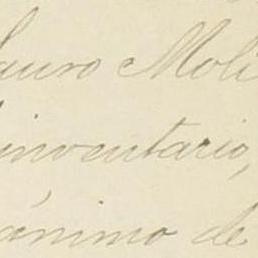 auro Moli
inventario,
ánimo de